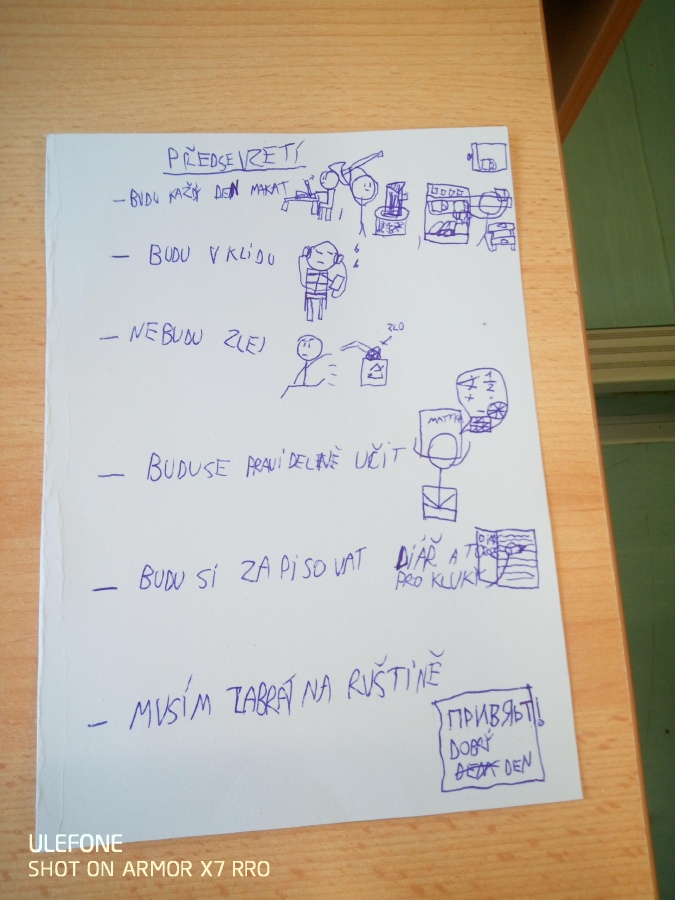 PŘEDSEVZETÍ
- BUDU KAŽDÝ DEN MAKAT
- BUDU V KLIDU
- NEBUDU ZLEJ
ZLO
MATTH
1/2
- BUDU SE PRAVIDELNĚ UČIT
- BUDU SI ZAPISOVAT DIÁŘ A TO
PRO KLUKY
- MUSÍM ZABRAT NA RUŠTINĚ
ПРИВЯЬТ!
DOBRÝ
DEN
ULEFONE
SHOT ON ARMOR X7 RRO